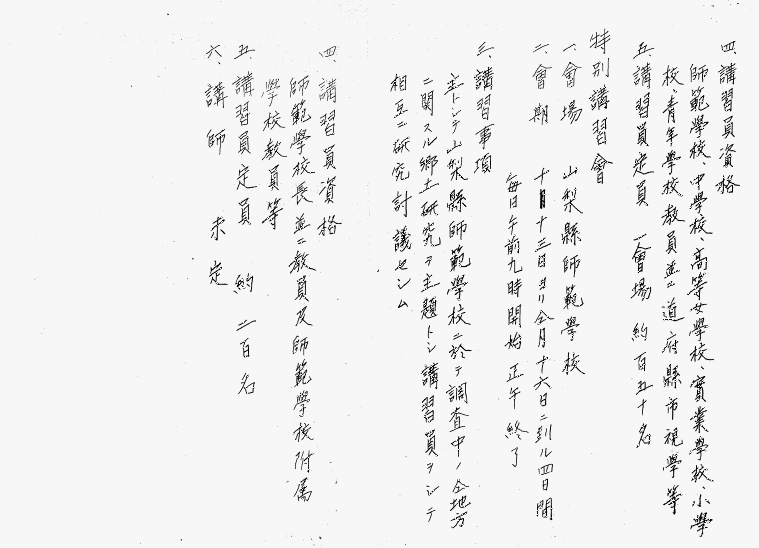 四、講習員資格
師範學校、中學校、高等女學校、實業學校、小學
校、青年學校教員並ニ道府縣市視學等
五、講習員定員 一會場 約百五十名
特別講習會
一、會場 山梨縣師範學校
二、會期 十月十三日ヨリ仝月十六日ニ到ル四日間
毎日午前九時開始 正午終了
三、講習事項
主トシテ山梨縣師範學校ニ於テ調査中ノ仝地方
ニ関スル郷土研究ヲ主題トシ講習員ヲシテ
相互ニ研究討議セシム
四、講習員資格
師範學校長並ニ教員及師範學校附属
學校教員等
五、講習員定員 約二百名
六、講師 未定